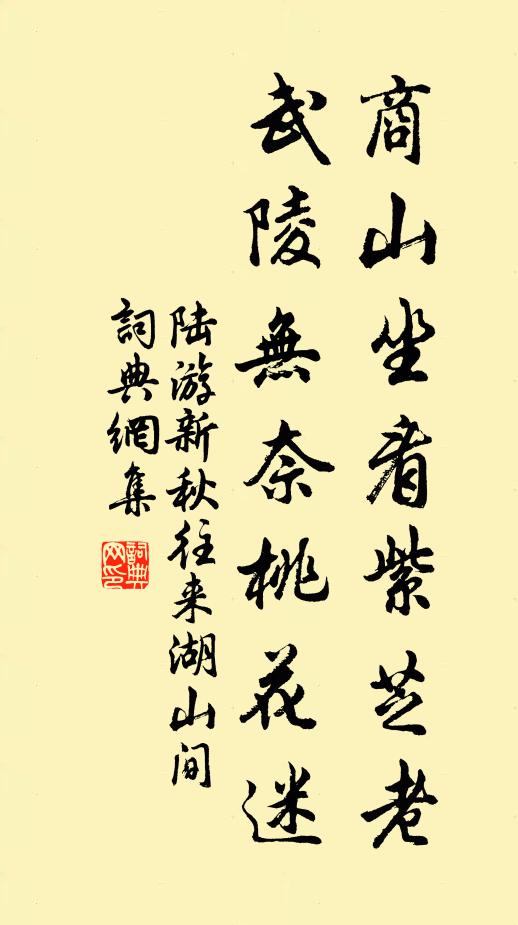 商山坐看紫芝老
武陵無奈桃花迷
陆游新秋往来湖山间
詞典網集
詞典
网印